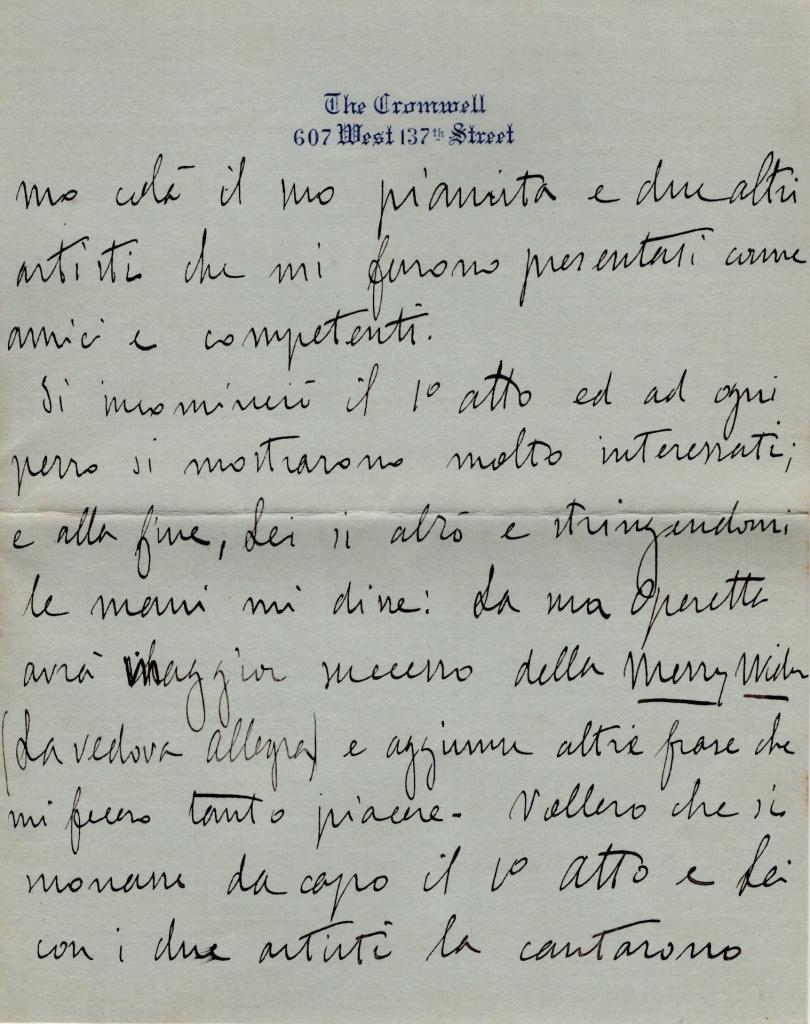 The Cromwell
607 West 137th Street
mo colà il suo pianista e due altri
artisti che mi furono presentati come
amici e competenti.
Si incominciò il 1º atto ed ad ogni
pezzo si mostrarono molto interessati;
e alla fine, Lei si alzò e stringendomi
le mani mi disse: La sua Operetta
avrà maggior successo della Merry Widow
(La vedova allegra) e aggiunse altre frase che
mi fecero tanto piacere - Vollero che si
suonasse da capo il 1º atto e Lei
con i due artisti la cantarono